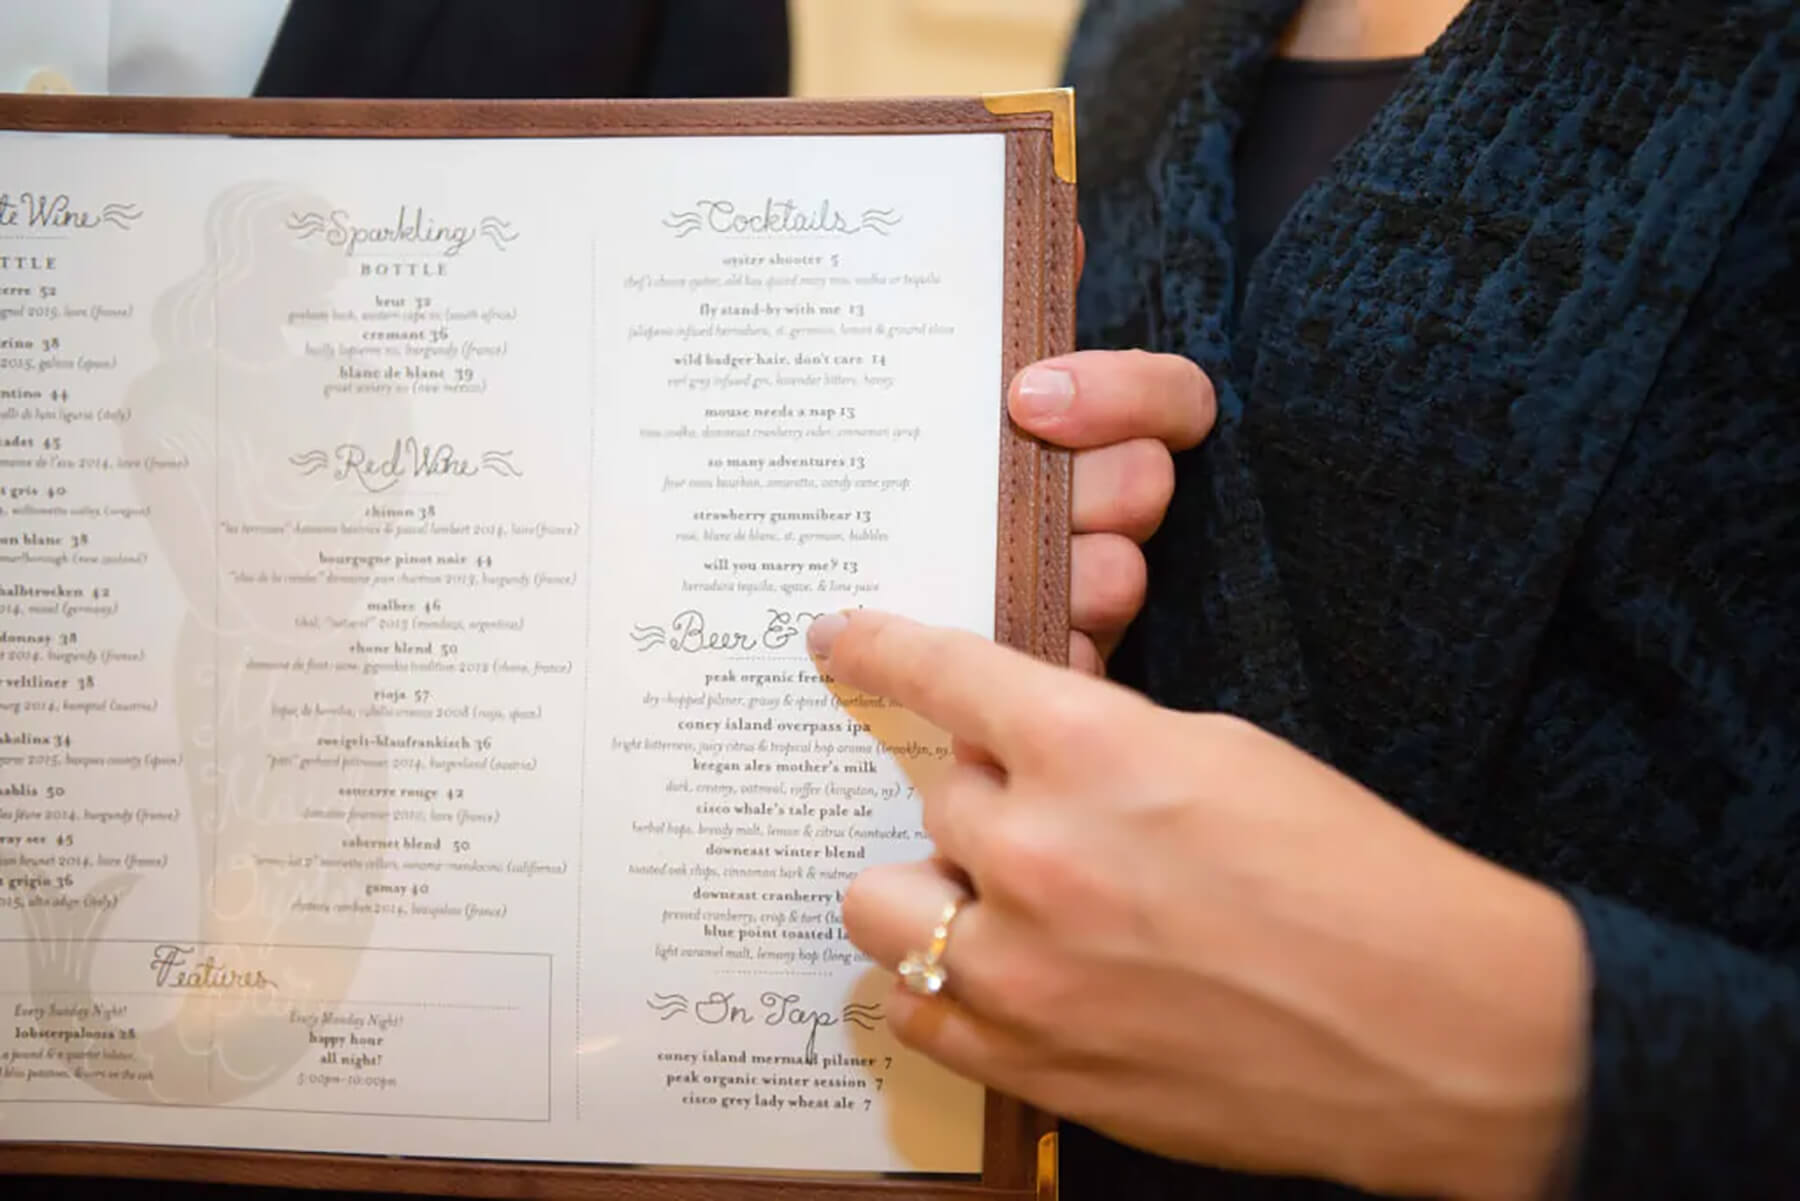 Wine
TTLE
52
2015, loire (france)
38
2015, galicia (spain)
44
(italy)
45
2014, loire (france)
gris 40
willamette valley, (oregon)
blanc 38
marlborough (new zealand)
halbtrocken 42
2014, mosel (germany)
38
2014, burgundy (france)
veltliner 38
2014, kamptal (austria)
34
2015, basque county (spain)
50
2014, burgundy (france)
45
brunet 2014, loire (france)
grigio 36
2015, alto adige (italy)
Sparkling
BOTTLE
brut 32
graham beck, western cape nv (south africa)
cremant 36
bailly lapierre nv, burgundy (france)
blanc de blanc 39
gruet winery nv (new mexico)
Red Wine
chinon 38
"les terrasses" domaine beatrice & pascal lambert 2014, loire (france)
bourgogne pinot noir 44
domaine jean chartron 2013, burgundy (france)
malbec 46
"natural" 2013 (mendoza, argentina)
rhone blend 50
domaine de font-sane, gigondas tradition 2012 (rhone, france)
rioja 57
2008 (rioja, spain)
zweigelt-blaufrankisch 36
"pitti" gerhard pittnauer 2014, burgenland (austria)
sancerre rouge 42
domaine fournier 2010, loire (france)
cabernet blend 50
sonoma-mendocino (california)
gamay 40
2014, beaujolais (france)
Features
Every Sunday Night!
lobsterpalooza 28
a pound & a quarter lobster,
bliss potatoes, & corn on the cob
Every Monday Night!
happy hour
all night!
5:00pm-10:00pm
Cocktails
oyster shooter 5
chef's choice oyster, old bay spiced mary mix, vodka or tequila
fly stand-by with me 13
jalapeno infused herradura, st. germain, lemon & ground clove
wild badger hair, don't care 14
earl grey infused gin, lavender bitters, honey
mouse needs a nap 13
titos vodka, downeast cranberry cider, cinnamon syrup
so many adventures 13
four roses bourbon, amaretto, candy cane syrup
strawberry gummibear 13
rose, blanc de blanc, st. germain, bubbles
will you marry me? 13
herradura tequila, agave, & lime juice
Beer &
peak organic fresh
dry-hopped pilsner, grassy & spiced (portland,
coney island overpass ipa
bright bitterness, juicy citrus & tropical hop aroma (brooklyn, ny)
keegan ales mother's milk
dark, creamy, oatmeal, coffee (kingston, ny) 7
cisco whale's tale pale ale
herbal hops, bready malt, lemon & citrus (nantucket,
downeast winter blend
toasted oak chips, cinnamon bark & nutmeg
downeast cranberry
pressed cranberry, crisp & tart
blue point toasted
light caramel malt, lemony hop (long
On Tap
coney island mermaid pilsner 7
peak organic winter session 7
cisco grey lady wheat ale 7